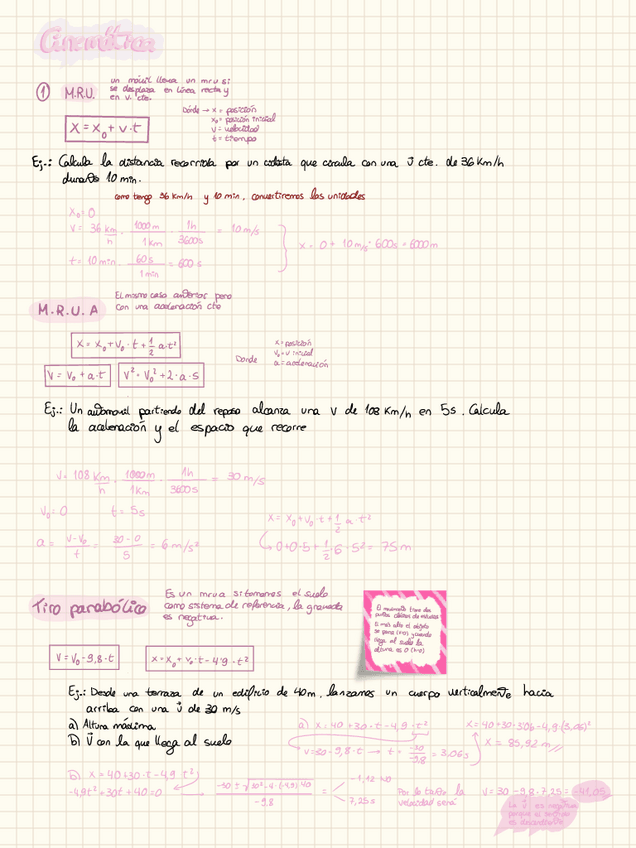 Cinemática
① M.R.U.
un móvil lleva un mru si
se desplaza en línea recta y
en v. cte.
X = X₀ + v·t
Dónde → x = posición
x₀ = posición inicial
v = velocidad
t = tiempo
Ej.: Calcula la distancia recorrida por un ciclista que circula con una v⃗ cte. de 36 Km/h
durante 10 min.
como tengo 36 Km/h y 10 min, convertiremos las unidades
X₀ = 0
V = 36 km/h · 1000 m/1 km · 1h/3600s = 10 m/s
t = 10 min · 60 s/1 min = 600 s
x = 0 + 10 m/s · 600s = 6000m
M.R.U.A
El mismo caso anterior pero
con una aceleración cte
X = X₀ + V₀ · t + 1/2 a·t²
V = V₀ + a·t
V² = V₀² + 2·a·s
Donde
x = posición
V₀ = v inicial
a = aceleración
Ej.: Un automovil partiendo del reposo alcanza una V de 108 Km/h en 5s. Calcula
la aceleración y el espacio que recorre
V = 108 Km/h · 1000m/1Km · 1h/3600s = 30 m/s
V₀ = 0 t = 5s
a = V-V₀/t = 30-0/5 = 6 m/s²
X = X₀ + V₀ · t + 1/2 a · t²
0+0·5+1/2·6·5² = 75 m
Tiro parabólico
Es un mrua si tomamos el suelo
como sistema de referencia, la gravedad
es negativa.
V = V₀ - 9,8·t
X = X₀ + V₀ · t - 4'9 · t²
El movimiento tiene dos
puntos
El más alto el objeto
se para (v=0) y cuando
llega al suelo la
altura es 0 (x=0)
Ej.: Desde una terraza de un edificio de 40m, lanzamos un cuerpo verticalmente hacia
arriba con una v⃗ de 30 m/s
a) Altura máxima
b) V⃗ con la que llega al suelo
a) X = 40 + 30·t - 4,9 · t²
V = 30 - 9,8·t → t = -30/-9,8 = 3,06s
X = 40 + 30·3'06 - 4,9 (3,06)²
X = 85,92 m
b) X = 40 + 30·t - 4,9 t²
-4,9t² + 30t + 40 = 0
-30 ± √30² - 4·(-4,9)·40 / -9,8 =
-1,12 NO
7,25 s
Por lo tanto la
velocidad será
V = 30 - 9,8·7,25 = -41,05
La v⃗ es negativa
porque el sentido
es descendente